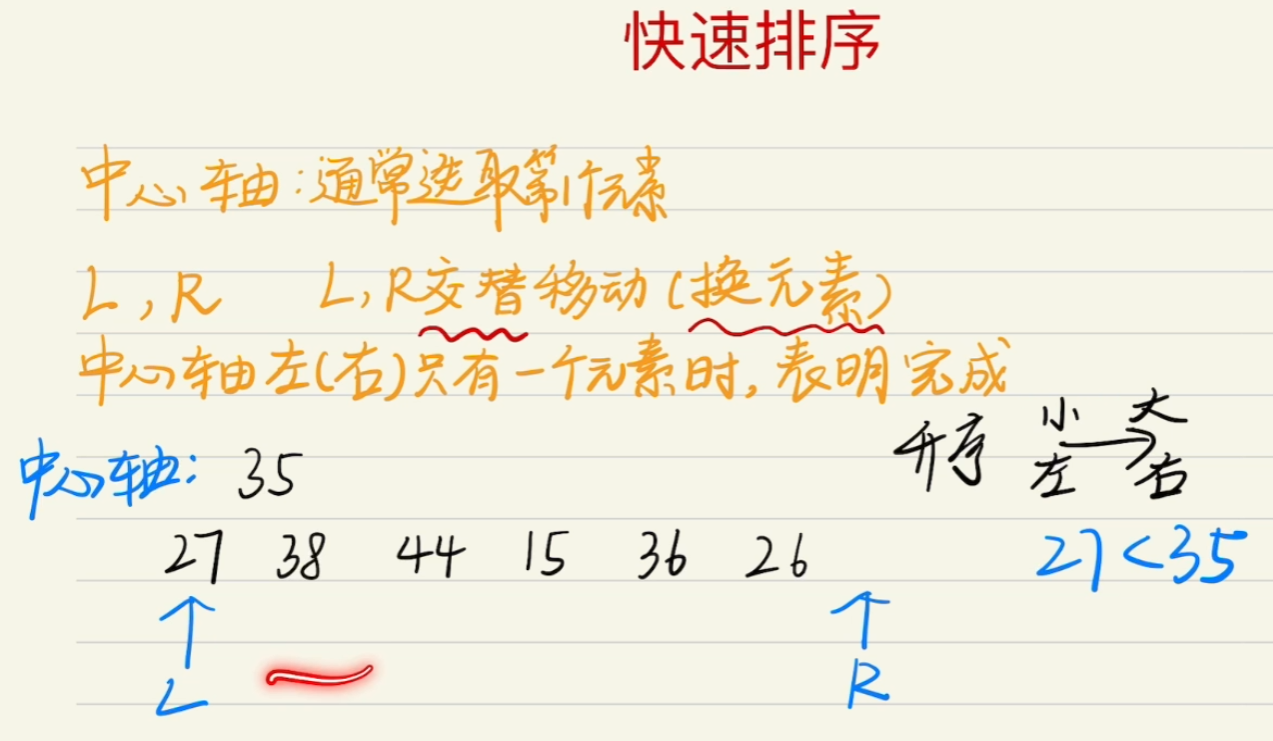 快速排序
中心轴:通常选取第1个元素
L,R L,R交替移动(换元素)
中心轴左(右)只有一个元素时,表明完成
升序 小 大
左 右
中心轴: 35
27 38 44 15 36 26 27<35
L R